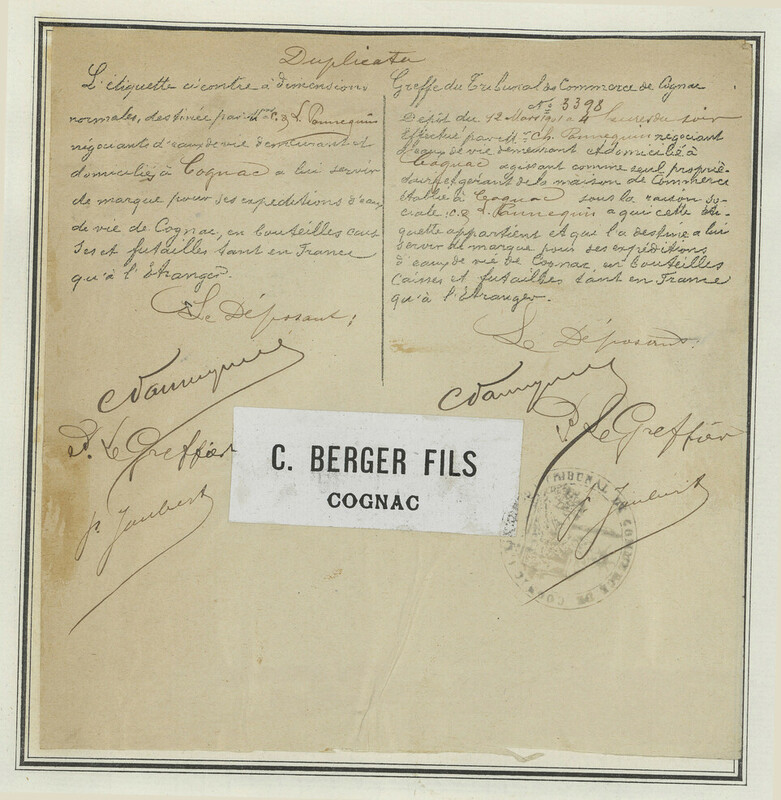 Duplicata
L'étiquette ci contre à dimensions
normales, destinée par Mrs C. & L. Pannequin
négociants d'eau de vie demeurant et
domiciliés à Cognac a lui servir
de marque pour ses expeditions d'eau
de vie de Cognac, en bouteilles cais
ses et futailles tant en France
qu'à l'Étranger.
Le Déposant:
CPannequin
P. Le Greffier
J. Joubert
Greffe du Tribunal de Commerce de Cognac
No 3398
Depôt du 12 Mars 1901 a 4 heures du soir
Effectué par Mr Ch. Pannequin négociant
d'eau de vie demeurant et domicilié à
Cognac agissant comme seul proprié-
taire et gérant de la maison de Commerce
établie à Cognac sous la raison so-
ciale: C. & L. Pannequin a qui cette éti-
quette appartient et que l'a destine a lui
servir de marque pour ses expéditions
d'eau de vie de Cognac, en bouteilles
Caisses et futailles tant en France
qu'à l'Étranger.
Le Déposant:
CPannequin
P. Le Greffier
J. Joubert
C. BERGER FILS
COGNAC
TRIBUNAL DE COMMERCE DE COGNAC